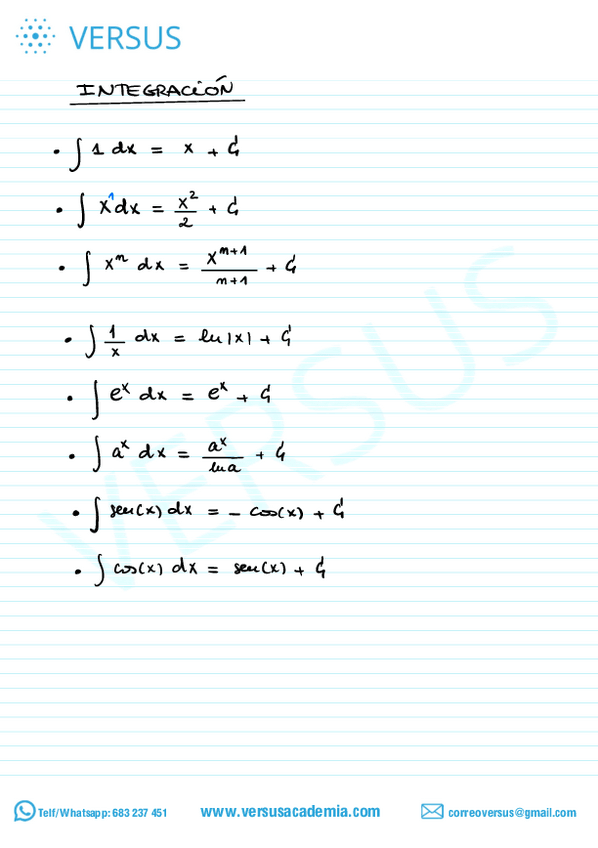 VERSUS
INTEGRACIÓN
• ∫ 1 dx = x + C
• ∫ x¹ dx = x²/2 + C
• ∫ xⁿ dx = xⁿ⁺¹/n+1 + C
• ∫ 1/x dx = ln|x| + C
• ∫ eˣ dx = eˣ + C
• ∫ aˣ dx = aˣ/ln a + C
• ∫ sen(x) dx = - cos(x) + C
• ∫ cos(x) dx = sen(x) + C
VERSUS
Telf/Whatsapp: 683 237 451 www.versusacademia.com correoversus@gmail.com